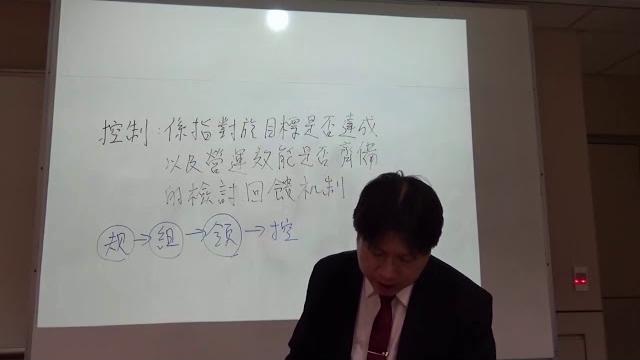 控制：係指對於目標是否達成
以及營運效能是否齊備
的檢討回饋机制
規→組→領→控